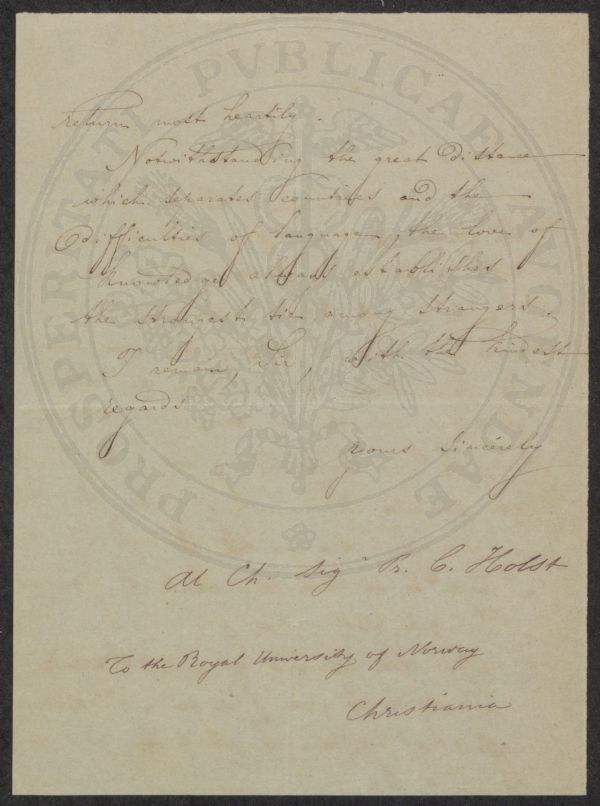 return most heartily.
Notwithstanding the great distance
which separates countries and the
difficulties of language, the love of
knowledge always establishes
the strongest tie among strangers.
I remain, Sir, with the kindest
regards
yours sincerely
Al Ch. Sigr Pr. C. Holst
To the Royal University of Norway
Christiania
PROSPERITATI PVBLICAE AVGENDAE